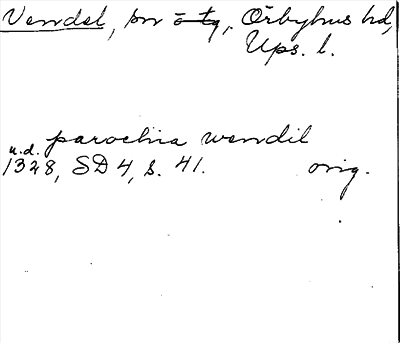 Vendel, sn o tg, Örbyhus hd,
Ups. l.
parochia wendil
u.d.
1328, SD 4, s. 41. orig.